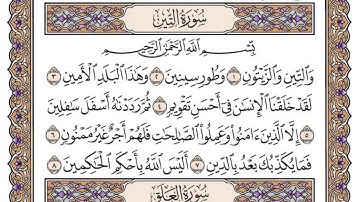 سُورَةُ التِّينِ
بِسْمِ اللَّهِ الرَّحْمَٰنِ الرَّحِيمِ
وَالتِّينِ وَالزَّيْتُونِ ١ وَطُورِ سِينِينَ ٢ وَهَٰذَا الْبَلَدِ الْأَمِينِ ٣
لَقَدْ خَلَقْنَا الْإِنسَٰنَ فِي أَحْسَنِ تَقْوِيمٍ ٤ ثُمَّ رَدَدْنَٰهُ أَسْفَلَ سَٰفِلِينَ
٥ إِلَّا الَّذِينَ ءَامَنُوا وَعَمِلُوا الصَّٰلِحَٰتِ فَلَهُمْ أَجْرٌ غَيْرُ مَمْنُونٍ ٦
فَمَا يُكَذِّبُكَ بَعْدُ بِالدِّينِ ٧ أَلَيْسَ اللَّهُ بِأَحْكَمِ الْحَٰكِمِينَ ٨
سُورَةُ الْعَلَقِ